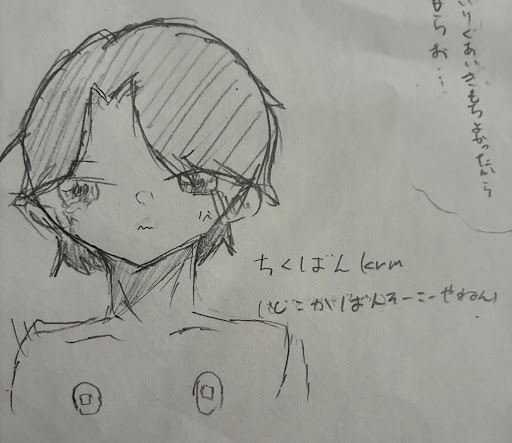 いりぐあいきもちよかったから
からお…
ちくばんkrm
(どこがばんそーこーやねん)